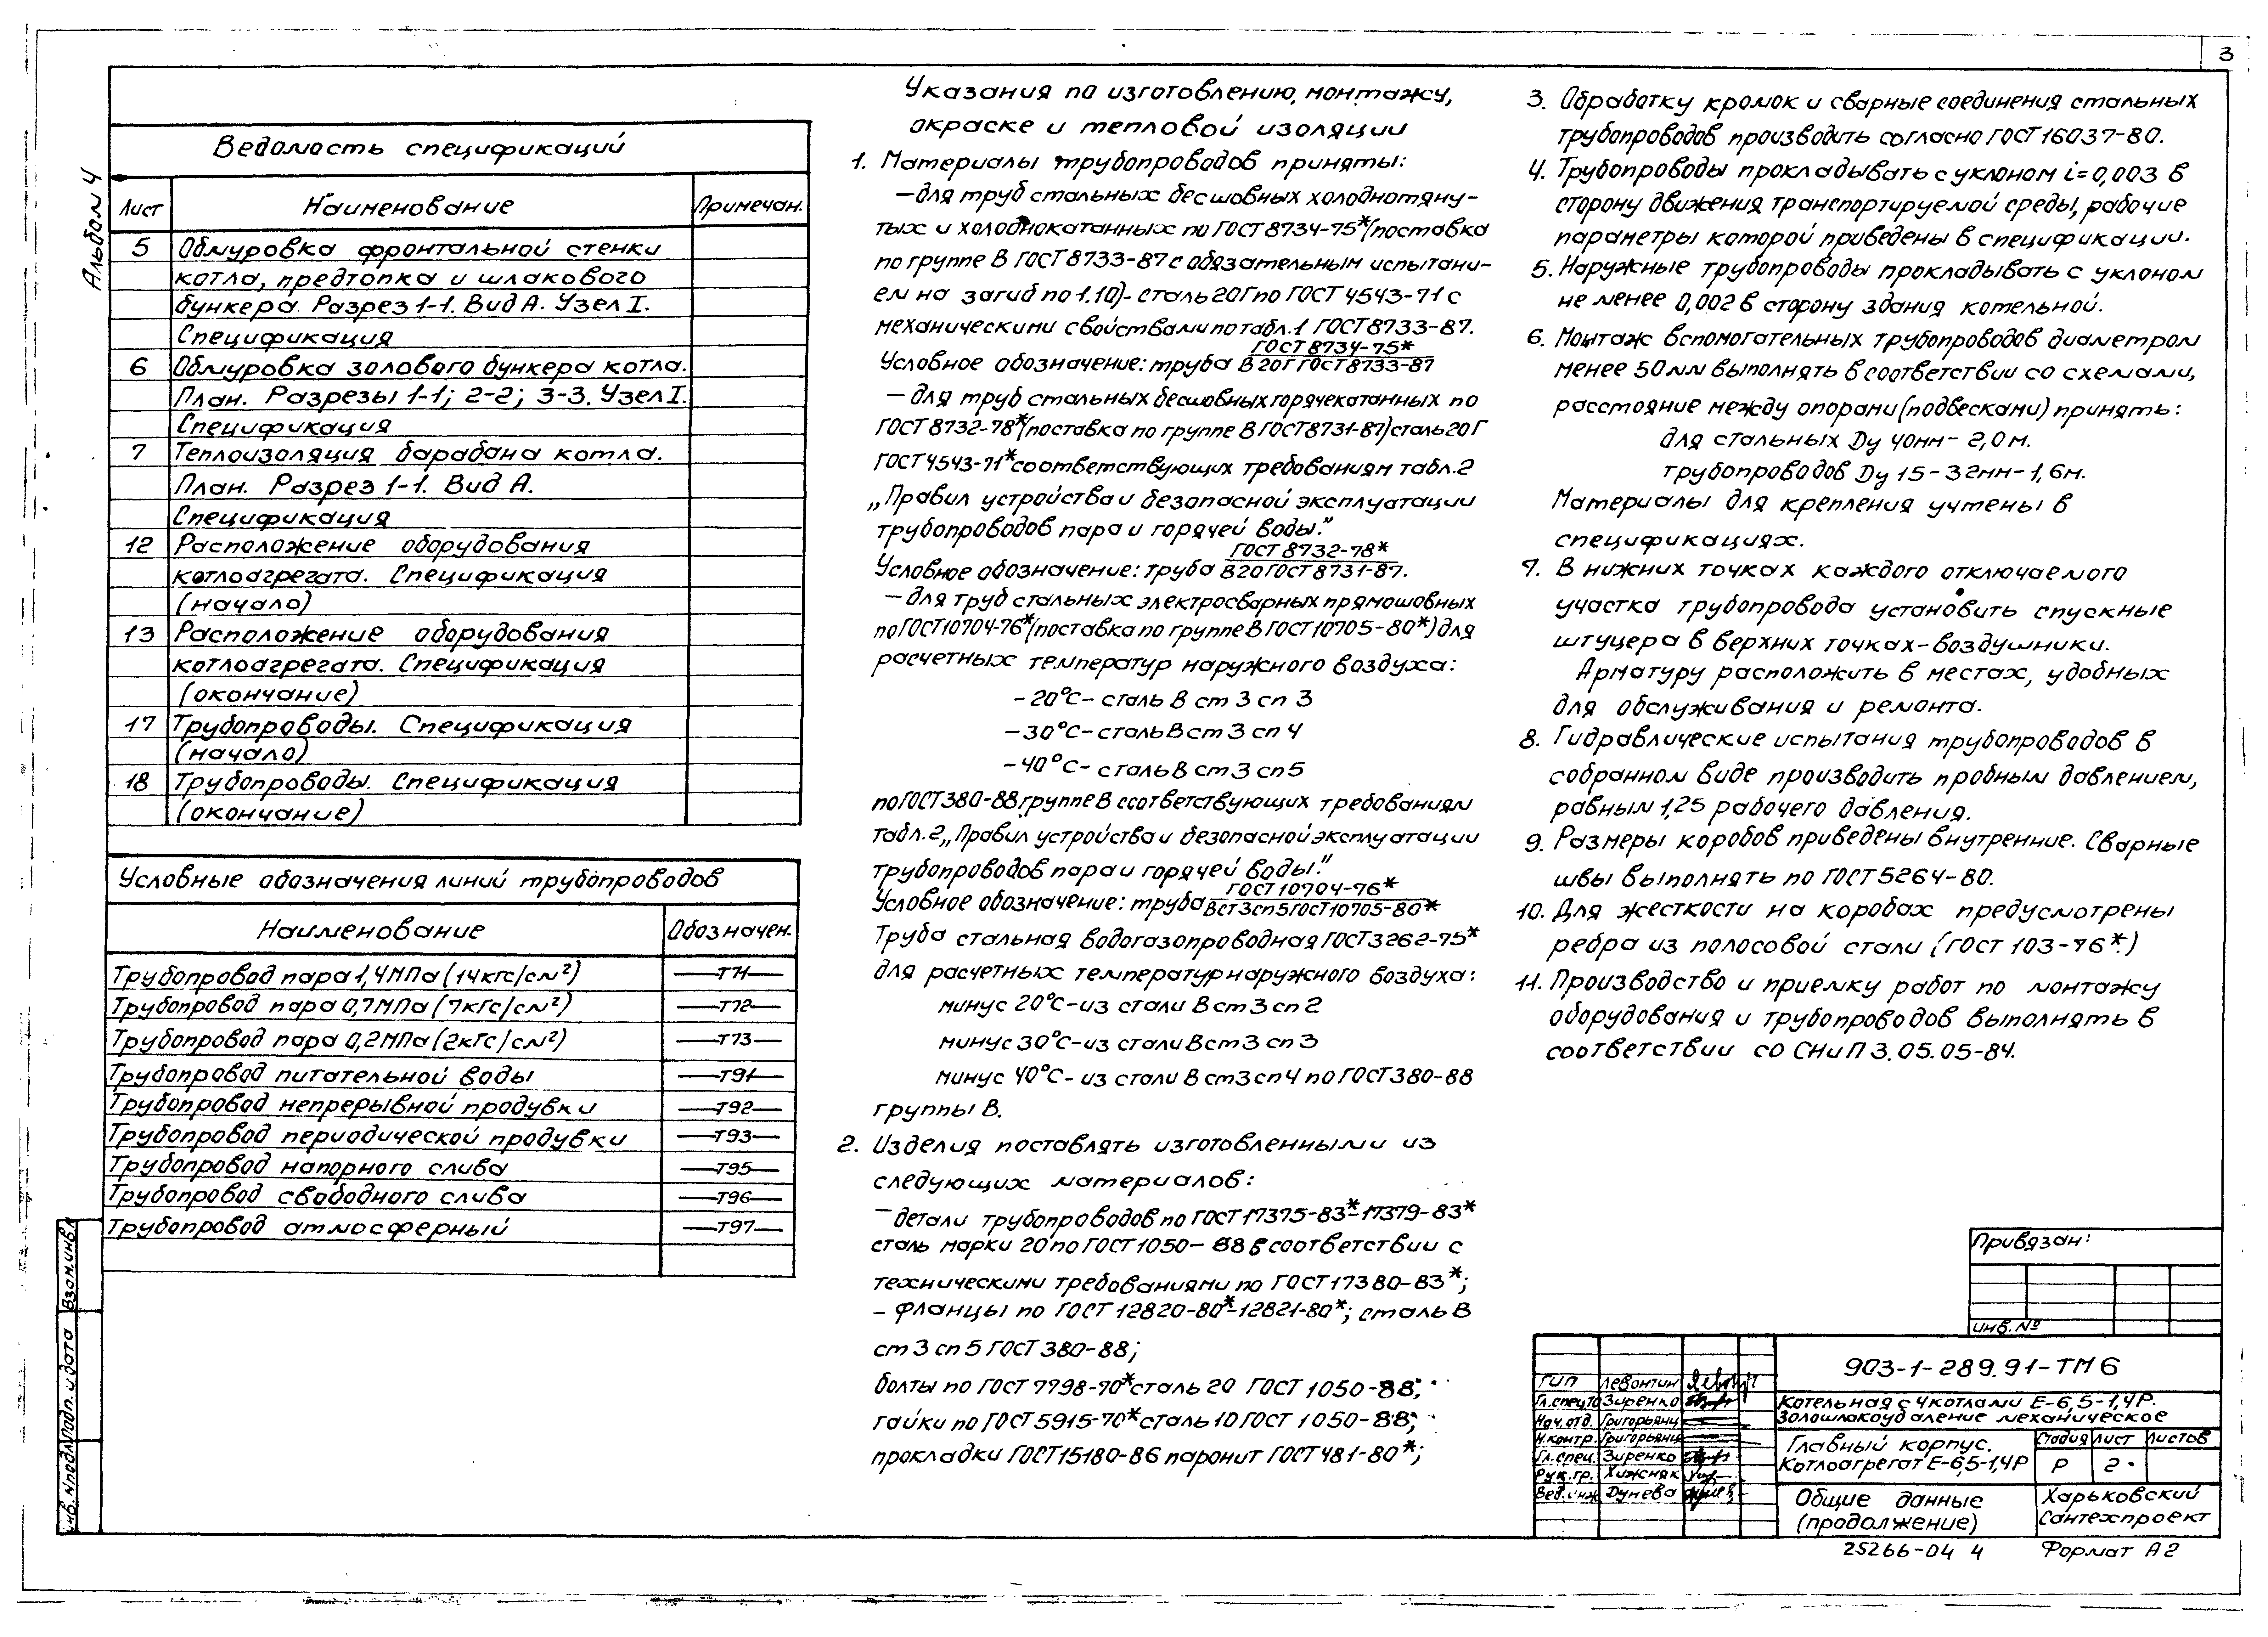 3
Альбом 4
Ведомость спецификаций
Лист Наименование Примечан.
5 Обмуровка фронтальной стенки
котла, предтопка и шлакового
бункера. Разрез 1-1. Вид А. Узел I.
Спецификация
6 Обмуровка золового бункера котла.
План. Разрезы 1-1; 2-2; 3-3. Узел I.
Спецификация
7 Теплоизоляция барабана котла.
План. Разрез 1-1. Вид А.
Спецификация
12 Расположение оборудования
котлоагрегата. Спецификация
(начало)
13 Расположение оборудования
котлоагрегата. Спецификация
(окончание)
17 Трубопроводы. Спецификация
(начало)
18 Трубопроводы. Спецификация
(окончание)
Условные обозначения линий трубопроводов
Наименование Обозначен.
Трубопровод пара 1,4МПа (14кгс/см²) —Т71—
Трубопровод пара 0,7МПа (7кгс/см²) —Т72—
Трубопровод пара 0,2МПа (2кгс/см²) —Т73—
Трубопровод питательной воды —Т91—
Трубопровод непрерывной продувки —Т92—
Трубопровод периодической продувки —Т93—
Трубопровод напорного слива —Т95—
Трубопровод свободного слива —Т96—
Трубопровод атмосферный —Т97—
Указания по изготовлению, монтажу,
окраске и тепловой изоляции
1. Материалы трубопроводов приняты:
—для труб стальных бесшовных холоднотяну-
тых и холоднокатанных по ГОСТ 8734-75* (поставка
по группе В ГОСТ 8733-87 с обязательным испытани-
ем на загиб по 1.10)- сталь 20Г по ГОСТ 4543-71 с
механическими свойствами по табл.1 ГОСТ 8733-87.
Условное обозначение: труба ГОСТ 8734-75*
В 20Г ГОСТ 8733-87
— для труб стальных бесшовных горячекатанных по
ГОСТ 8732-78* (поставка по группе В ГОСТ 8731-87) сталь 20Г
ГОСТ 4543-71* соответствующих требованиям табл.2
„Правил устройства и безопасной эксплуатации
трубопроводов пара и горячей воды."
Условное обозначение: труба ГОСТ 8732-78*
В20 ГОСТ 8731-87.
— для труб стальных электросварных прямошовных
по ГОСТ 10704-76* (поставка по группе В ГОСТ 10705-80*) для
расчетных температур наружного воздуха:
-20°С- сталь В ст 3 сп 3
-30°С- сталь В ст 3 сп 4
-40°С- сталь В ст 3 сп 5
по ГОСТ 380-88 группе В соответствующих требованиям
табл. 2 „Правил устройства и безопасной эксплуатации
трубопроводов пара и горячей воды."
Условное обозначение: труба ГОСТ 10704-76*
Вст 3сп5 ГОСТ 10705-80*
Труба стальная водогазопроводная ГОСТ 3262-75*
для расчетных температур наружного воздуха:
минус 20°С-из стали В ст 3 сп 2
минус 30°С-из стали В ст 3 сп 3
минус 40°С- из стали В ст 3 сп 4 по ГОСТ 380-88
группы В.
2. Изделия поставлять изготовленными из
следующих материалов:
— детали трубопроводов по ГОСТ 17375-83*-17379-83*
сталь марки 20 по ГОСТ 1050-88 в соответствии с
техническими требованиями по ГОСТ 17380-83*;
- фланцы по ГОСТ 12820-80*-12821-80*; сталь В
ст 3 сп 5 ГОСТ 380-88;
болты по ГОСТ 7798-70* сталь 20 ГОСТ 1050-88;
гайки по ГОСТ 5915-70* сталь 10 ГОСТ 1050-88;
прокладки ГОСТ 15180-86 паронит ГОСТ 481-80*;
3. Обработку кромок и сварные соединения стальных
трубопроводов производить согласно ГОСТ 16037-80.
4. Трубопроводы прокладывать с уклоном i=0,003 в
сторону движения транспортируемой среды, рабочие
параметры которой приведены в спецификации.
5. Наружные трубопроводы прокладывать с уклоном
не менее 0,002 в сторону здания котельной.
6. Монтаж вспомогательных трубопроводов диаметром
менее 50мм выполнять в соответствии со схемами,
расстояние между опорами (подвесками) принять:
для стальных Ду 40мм- 2,0 м.
трубопроводов Ду 15-32мм-1,6м.
Материалы для крепления учтены в
спецификациях.
7. В нижних точках каждого отключаемого
участка трубопровода установить спускные
штуцера в верхних точках-воздушники.
Арматуру расположить в местах, удобных
для обслуживания и ремонта.
8. Гидравлические испытания трубопроводов в
собранном виде производить пробным давлением,
равным 1,25 рабочего давления.
9. Размеры коробов приведены внутренние. Сварные
швы выполнять по ГОСТ 5264-80.
10. Для жесткости на коробах предусмотрены
ребра из полосовой стали (ГОСТ 103-76*.)
11. Производство и приемку работ по монтажу
оборудования и трубопроводов выполнять в
соответствии со СНиП 3.05.05-84.
Привязан:
инв. №
903-1-289.91-ТМ6
ГИП Левонтин
Гл.спец.ТО Зиренко
Нач.отд. Григорьянц
Н.контр. Григорьянц
Гл.спец. Зиренко
Рук.гр. Хижсняк
Вед.инж Дунева
Котельная с 4котлами Е-6,5-1,4Р.
Золошлакоудаление механическое
Главный корпус.
Котлоагрегат Е-6,5-1,4Р
Стадия Лист Листов
Р 2
Общие данные
(продолжение)
Харьковский
Сантехпроект
25266-04 4 Формат А2
Взам.инв.№
Подп. и дата
инв.№подл.